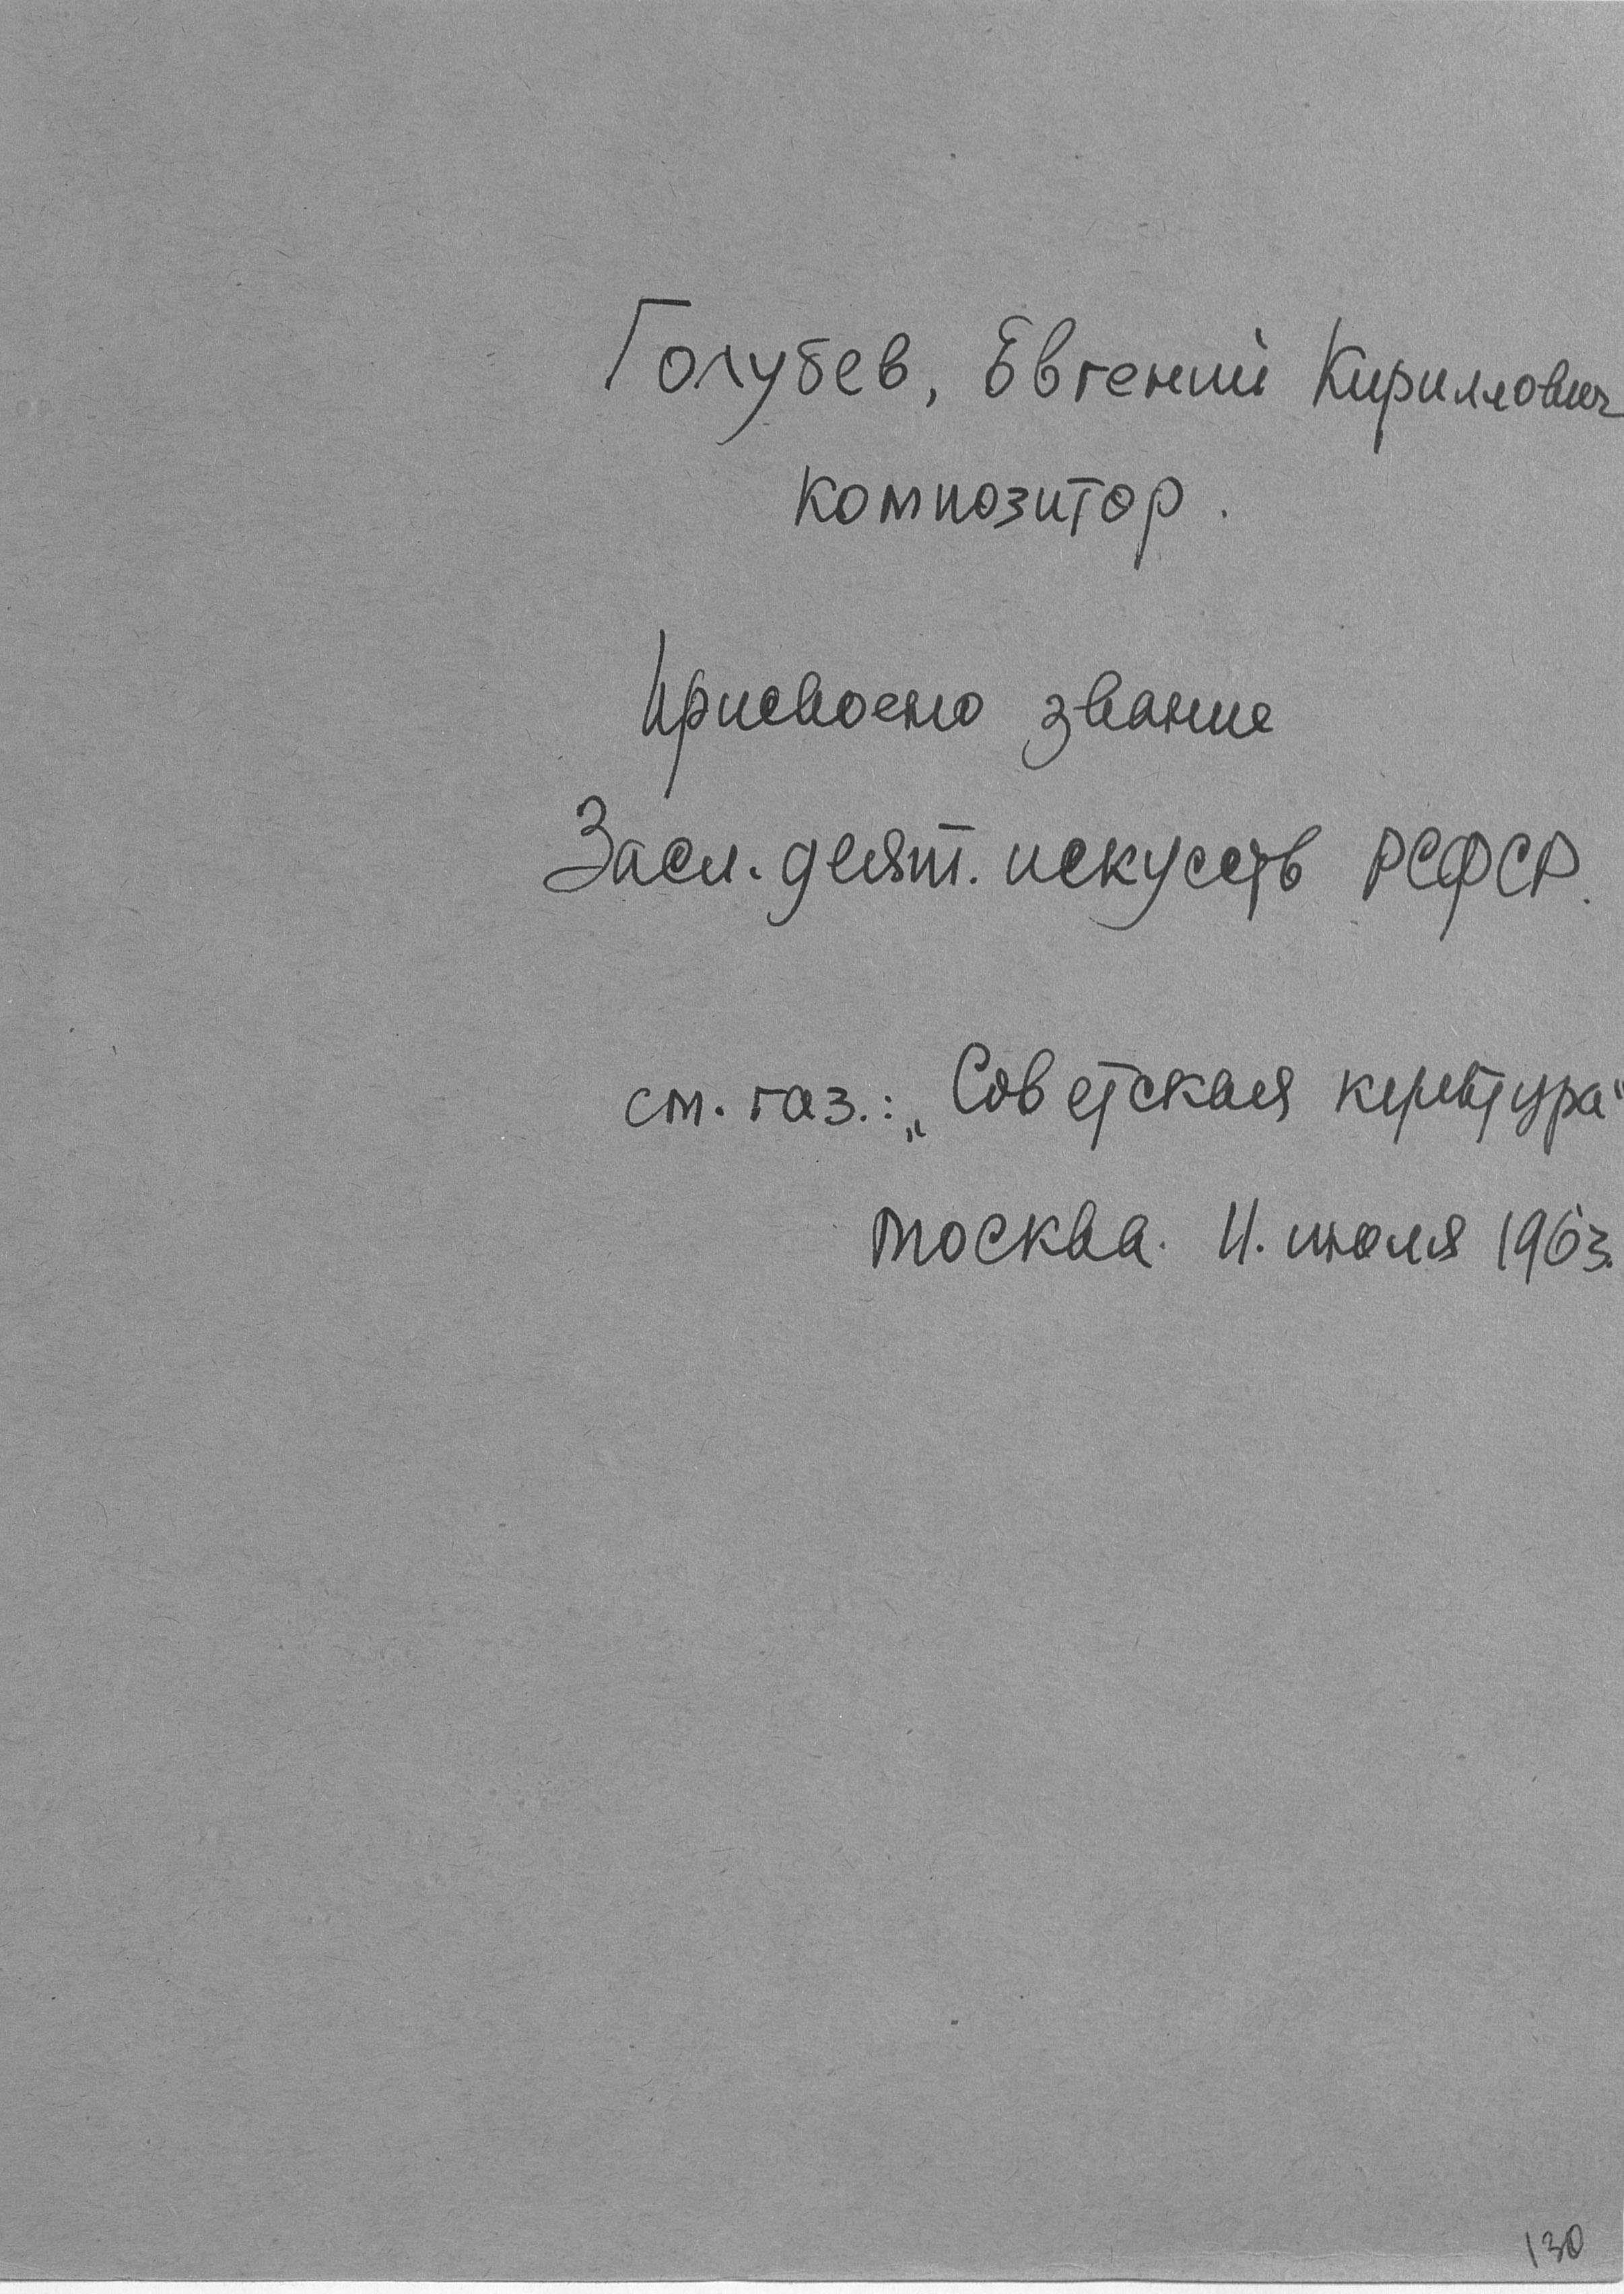 Голубев, Евгений Кириллович
композитор.
Присвоено звание
Засл. деят. искусств РСФСР.
см. газ.: „Советская культура"
Москва. 11. июля 1963.
130